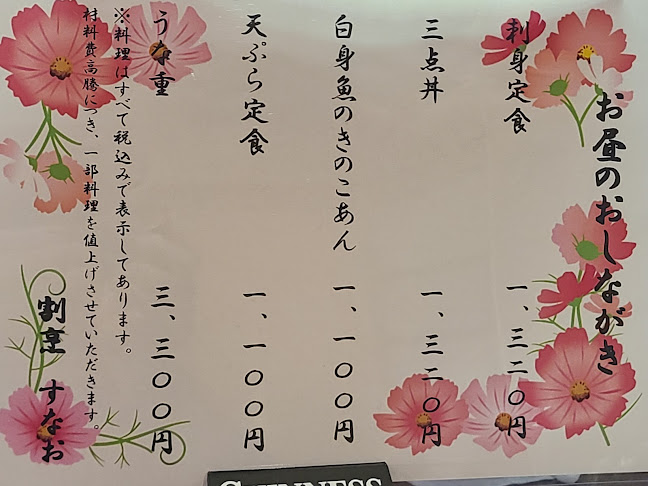 お昼のおしながき
刺身定食 一、三二〇円
三点丼 一、三二〇円
白身魚のきのこあん 一、一〇〇円
天ぷら定食 一、一〇〇円
うな重 三、三〇〇円
※料理はすべて税込みで表示してあります。
材料費高騰につき、一部料理を値上げさせていただきます。
割烹 すなお
GUINNESS